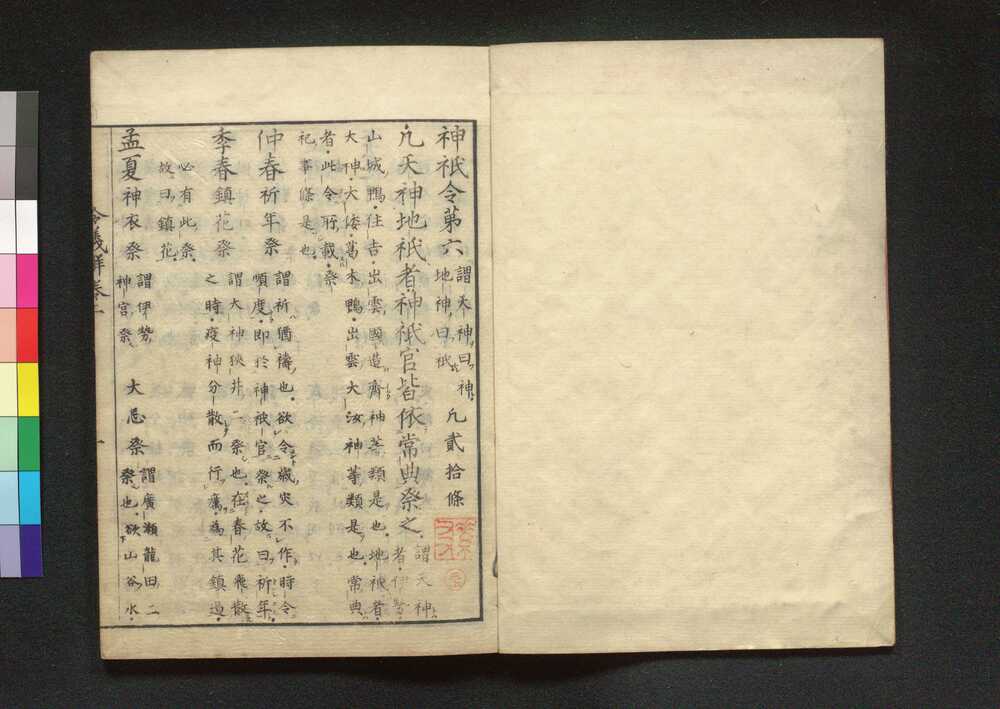 神祇令第六 謂天神曰神 地神曰祇 凡貳拾條
凡天神地祇者神祇官皆依常典祭之 謂天神 者伊勢
山城鴨住吉出雲國造齋神等類是也地祇者
大神大倭葛木鴨出雲大汝神等類是也常典
者此令所載祭
祀事條是也
仲春祈年祭 謂祈猶禱也欲令歳灾不作時令
順度即於神祇官祭之故曰祈年
季春鎮花祭 謂大神狹井二祭也在春花飛散
之時疫神分散而行癘為其鎮遏
必有此祭
故曰鎮花
孟夏神衣祭 謂伊勢 神宮祭 大忌祭 謂廣瀬龍田二
祭也欲山谷水
令義解卷二